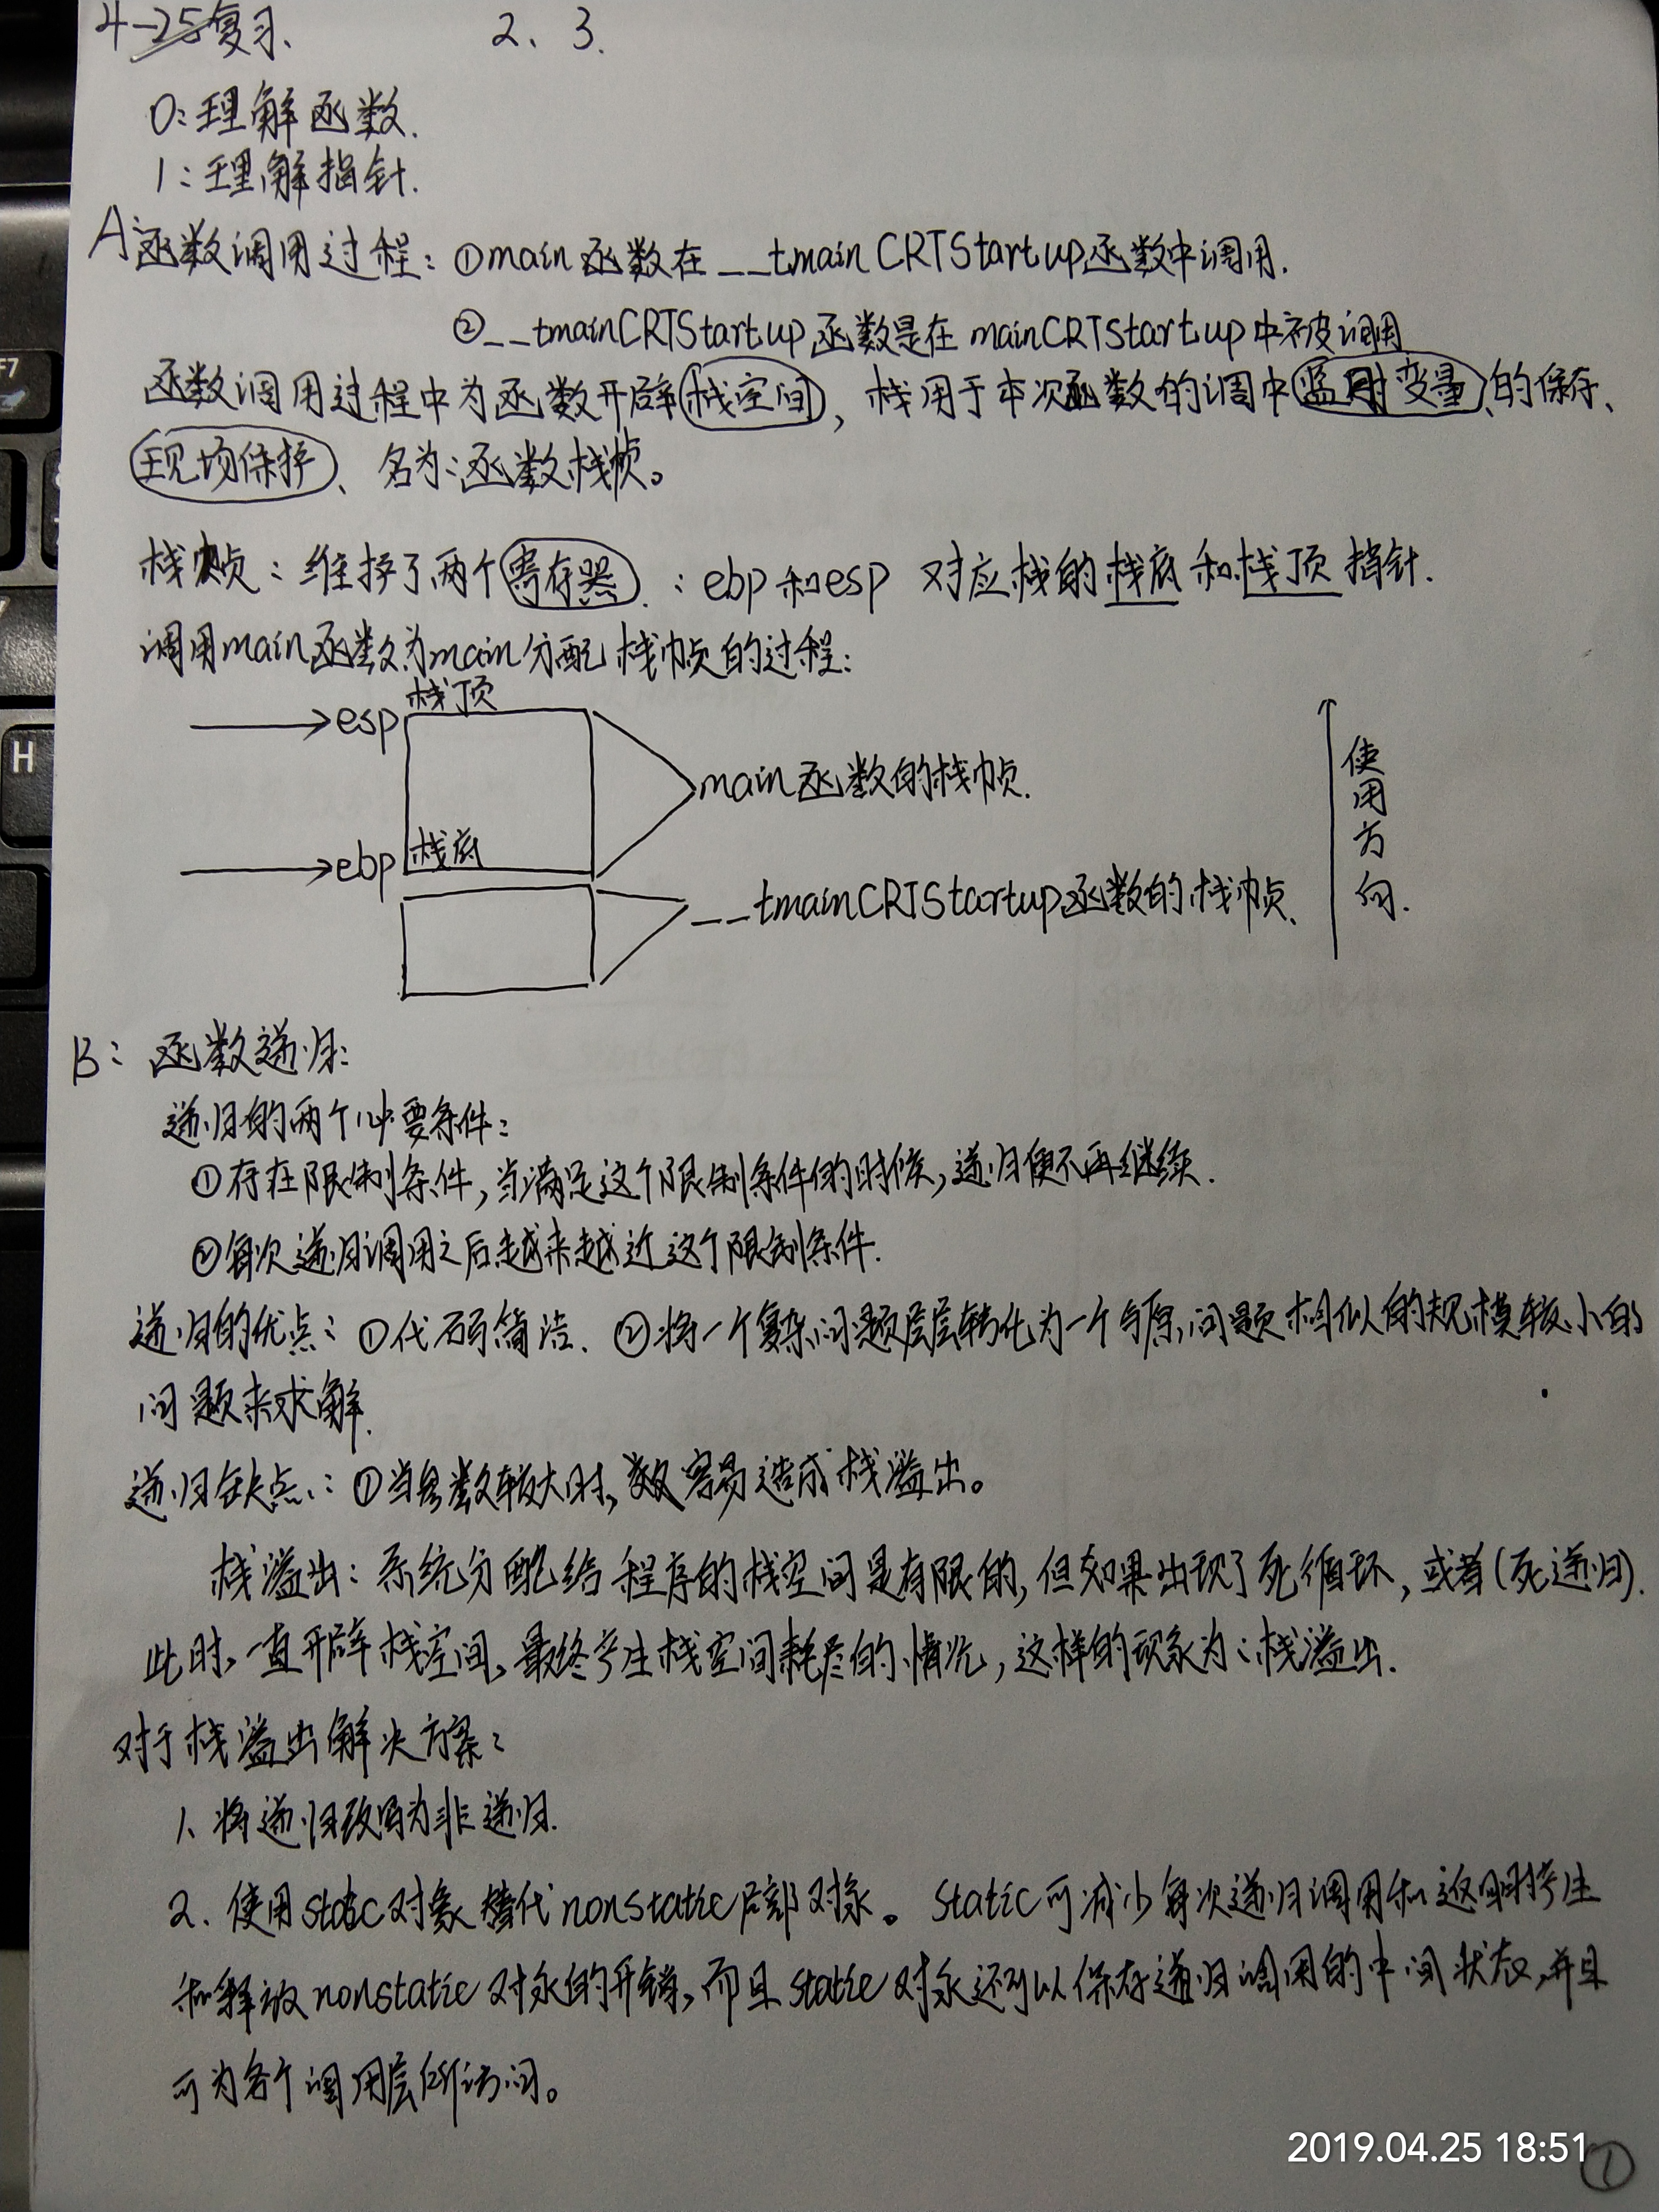 4-25复习、 2、3.
0:理解函数.
1:理解指针.
A函数调用过程:①main函数在__tmainCRTStartup函数中调用.
②__tmainCRTStartup函数是在mainCRTStartup中被调用
函数调用过程中为函数开辟栈空间,栈用于本次函数的调中临时变量的保存、
现场保护、名为:函数栈帧。
栈帧:维护了两个寄存器.:ebp和esp 对应栈的栈底和栈顶指针.
调用main函数为main分配栈帧的过程:
栈顶
esp
main函数的栈帧.
使用方向.
ebp 栈底
__tmainCRTStartup函数的栈帧、
B:函数递归:
递归的两个必要条件:
①存在限制条件,当满足这个限制条件的时候,递归便不再继续.
②每次递归调用之后越来越近这个限制条件.
递归的优点:①代码简洁.②将一个复杂问题层层转化为一个与原问题相似的规模较小的
问题来求解.
递归缺点:①当参数较大时,容易造成栈溢出。
栈溢出:系统分配给程序的栈空间是有限的,但如果出现了死循环,或者(死递归).
此时,一直开辟栈空间,最终产生栈空间耗尽的情况,这样的现象为:栈溢出.
对于栈溢出解决方案:
1、将递归改写为非递归.
2.使用static对象替代nonstatic局部对象。static可减少每次递归调用和返回时产生
和释放nonstatic对象的开销,而且static对象还可以保存递归调用的中间状态,并且
可为各个调用层所访问。
2019.04.25 18:51
①